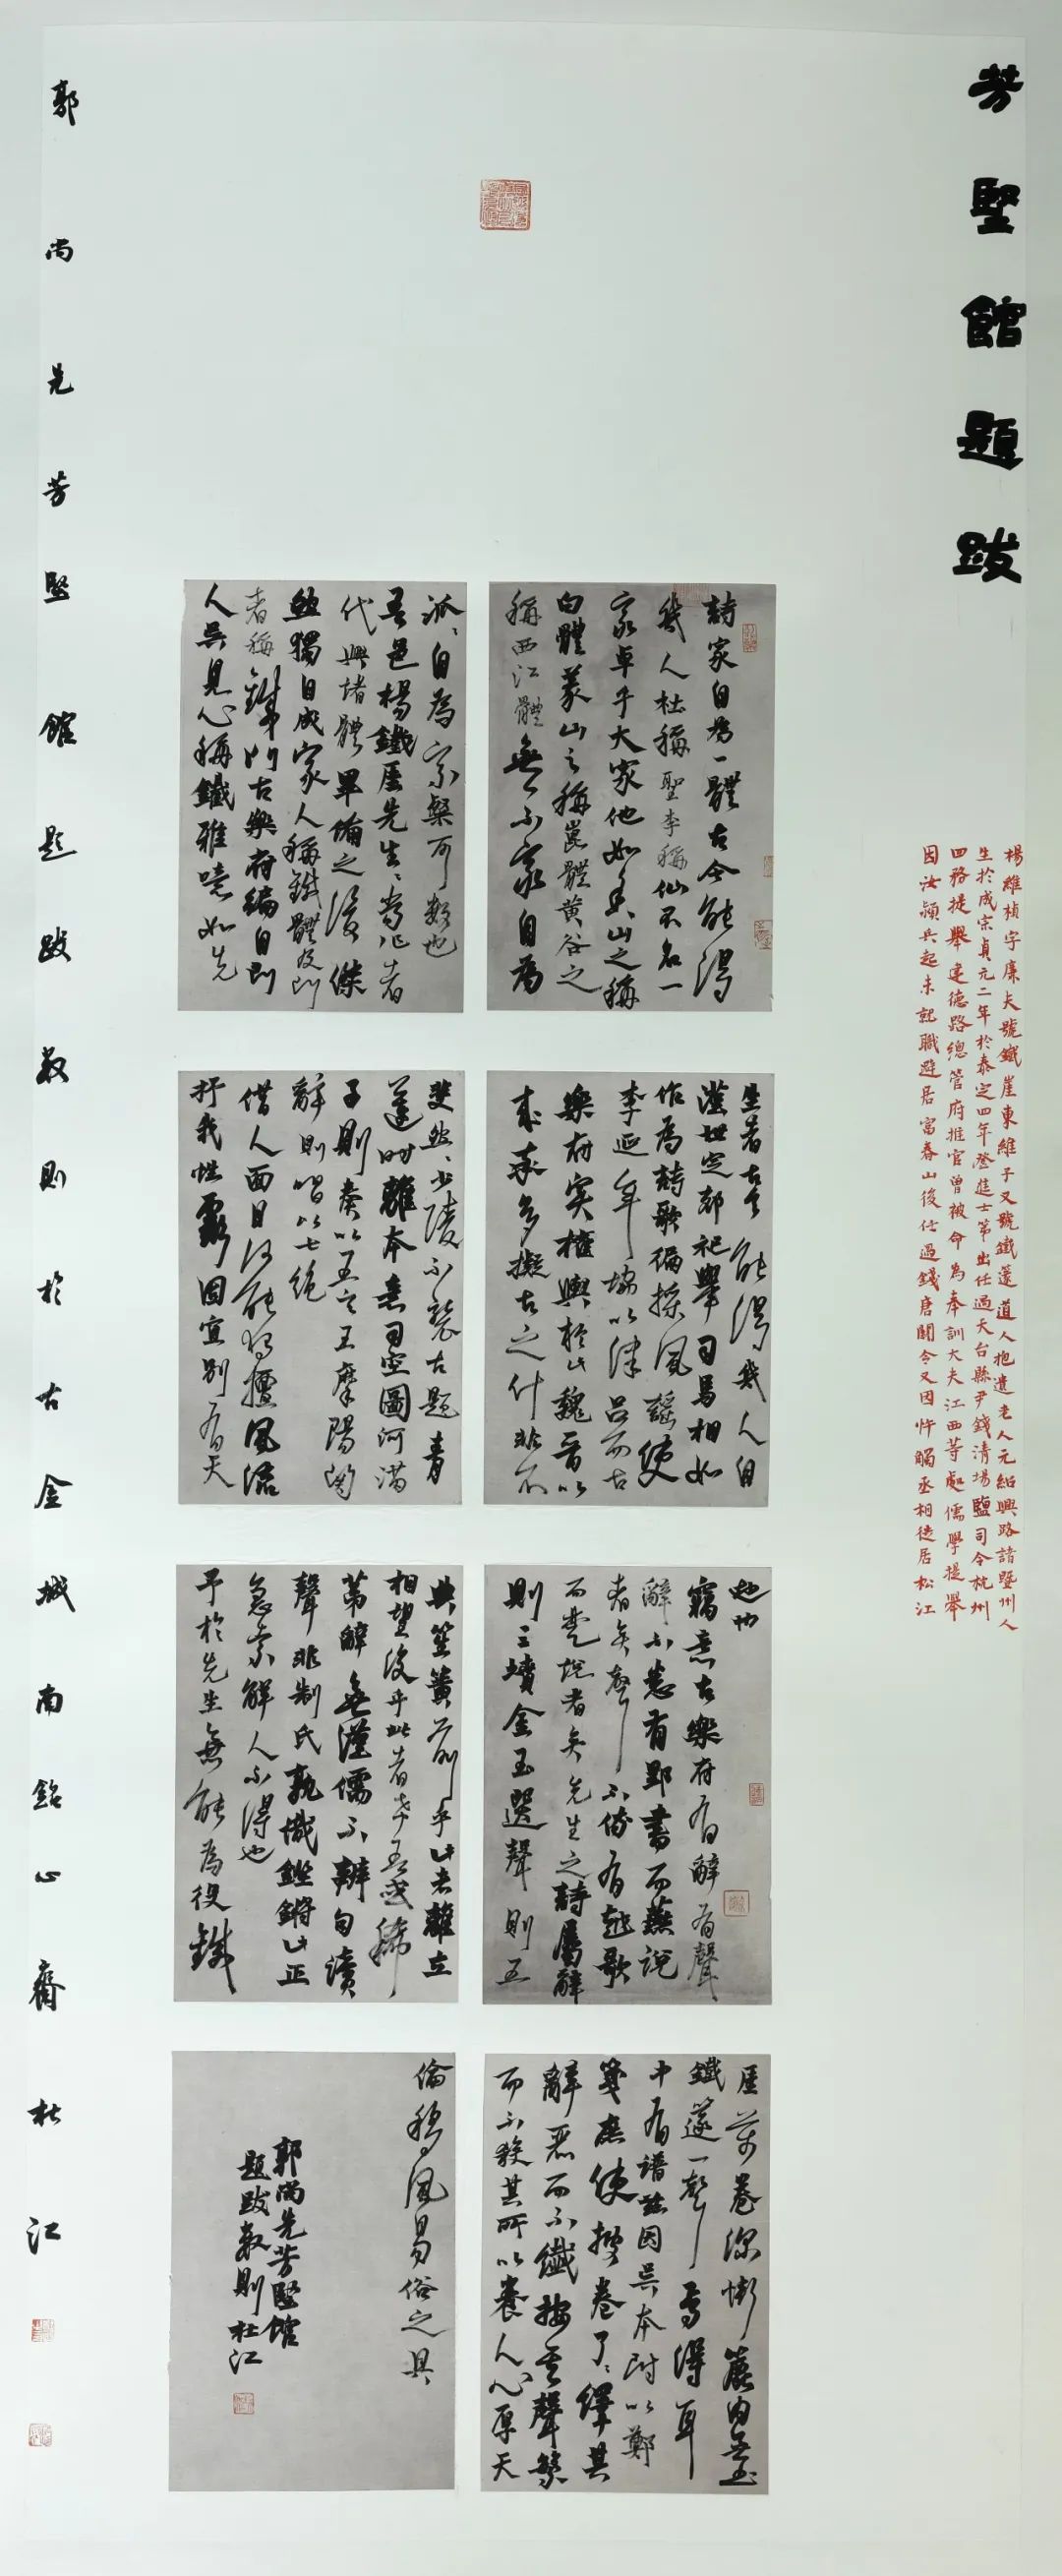 芳堅館題跋
楊維楨字廉夫號鐵崖東維子又號鐵邃道人抱遺老人元紹興路諸暨州人
生於成宗貞元二年於泰定四年登進士第出任過天台縣尹錢清場鹽司令杭州
四務提舉建德路總管府推官曾被命為奉訓大夫江西等處儒學提舉
因汝潁兵起未就職避居富春山後仕過錢唐關令又因忤觸丞相徙居松江
詩家自為一體古今能得
幾人杜稱聖李稱仙不名一
家卓乎大家他如香山之稱
白體義山之稱崑體黃谷之
稱西江體無不家自為
派自為家槩可數也
吾邑楊鐵厓先生當作者
代興堵體畢備之後傑
然獨自成家人稱鐵體及門
者稱鐵門古樂府編自門
人吳見心稱鐵雅嘻如先
生者古今能得幾人自
漢世定郊祀舉司馬相如
作為詩歌徧採風謠使
李延年協以律呂而古
樂府實權輿於此魏晉以
來亦多擬古之什非不
斐然少陵不襲古題青
蓮時離本意司空圖河滿
子則奏以五言王摩陽關
辭則唱以七絕
借人面目何能獨擅風流
抒我性靈因宜別有天
地也
竊意古樂府有辭有聲
辭不患有郢書而燕說
者矣聲不倚有越歌
而楚說者矣先生之詩屬辭
則三墳金玉選聲則五
典笙簧前乎此者離立
相望後乎此者希吾或稀
第辭無漢儒不辨句讀
聲非制氏孰識鏗鏘此正
急索解人不得也
予於先生無能為役鐵
厓萬卷深懷簾內無
鐵邃一聲焉得耳
中有譜茲因吳本附以鄭
箋庶使披卷了了繹其
辭惡而不纖按其聲繁
而不殺其所以養人心厚天
倫移風易俗之具
郭尚先芳堅館
題跋數則杜江
郭尚先芳堅館題跋數則於古金城南銘心齋杜江